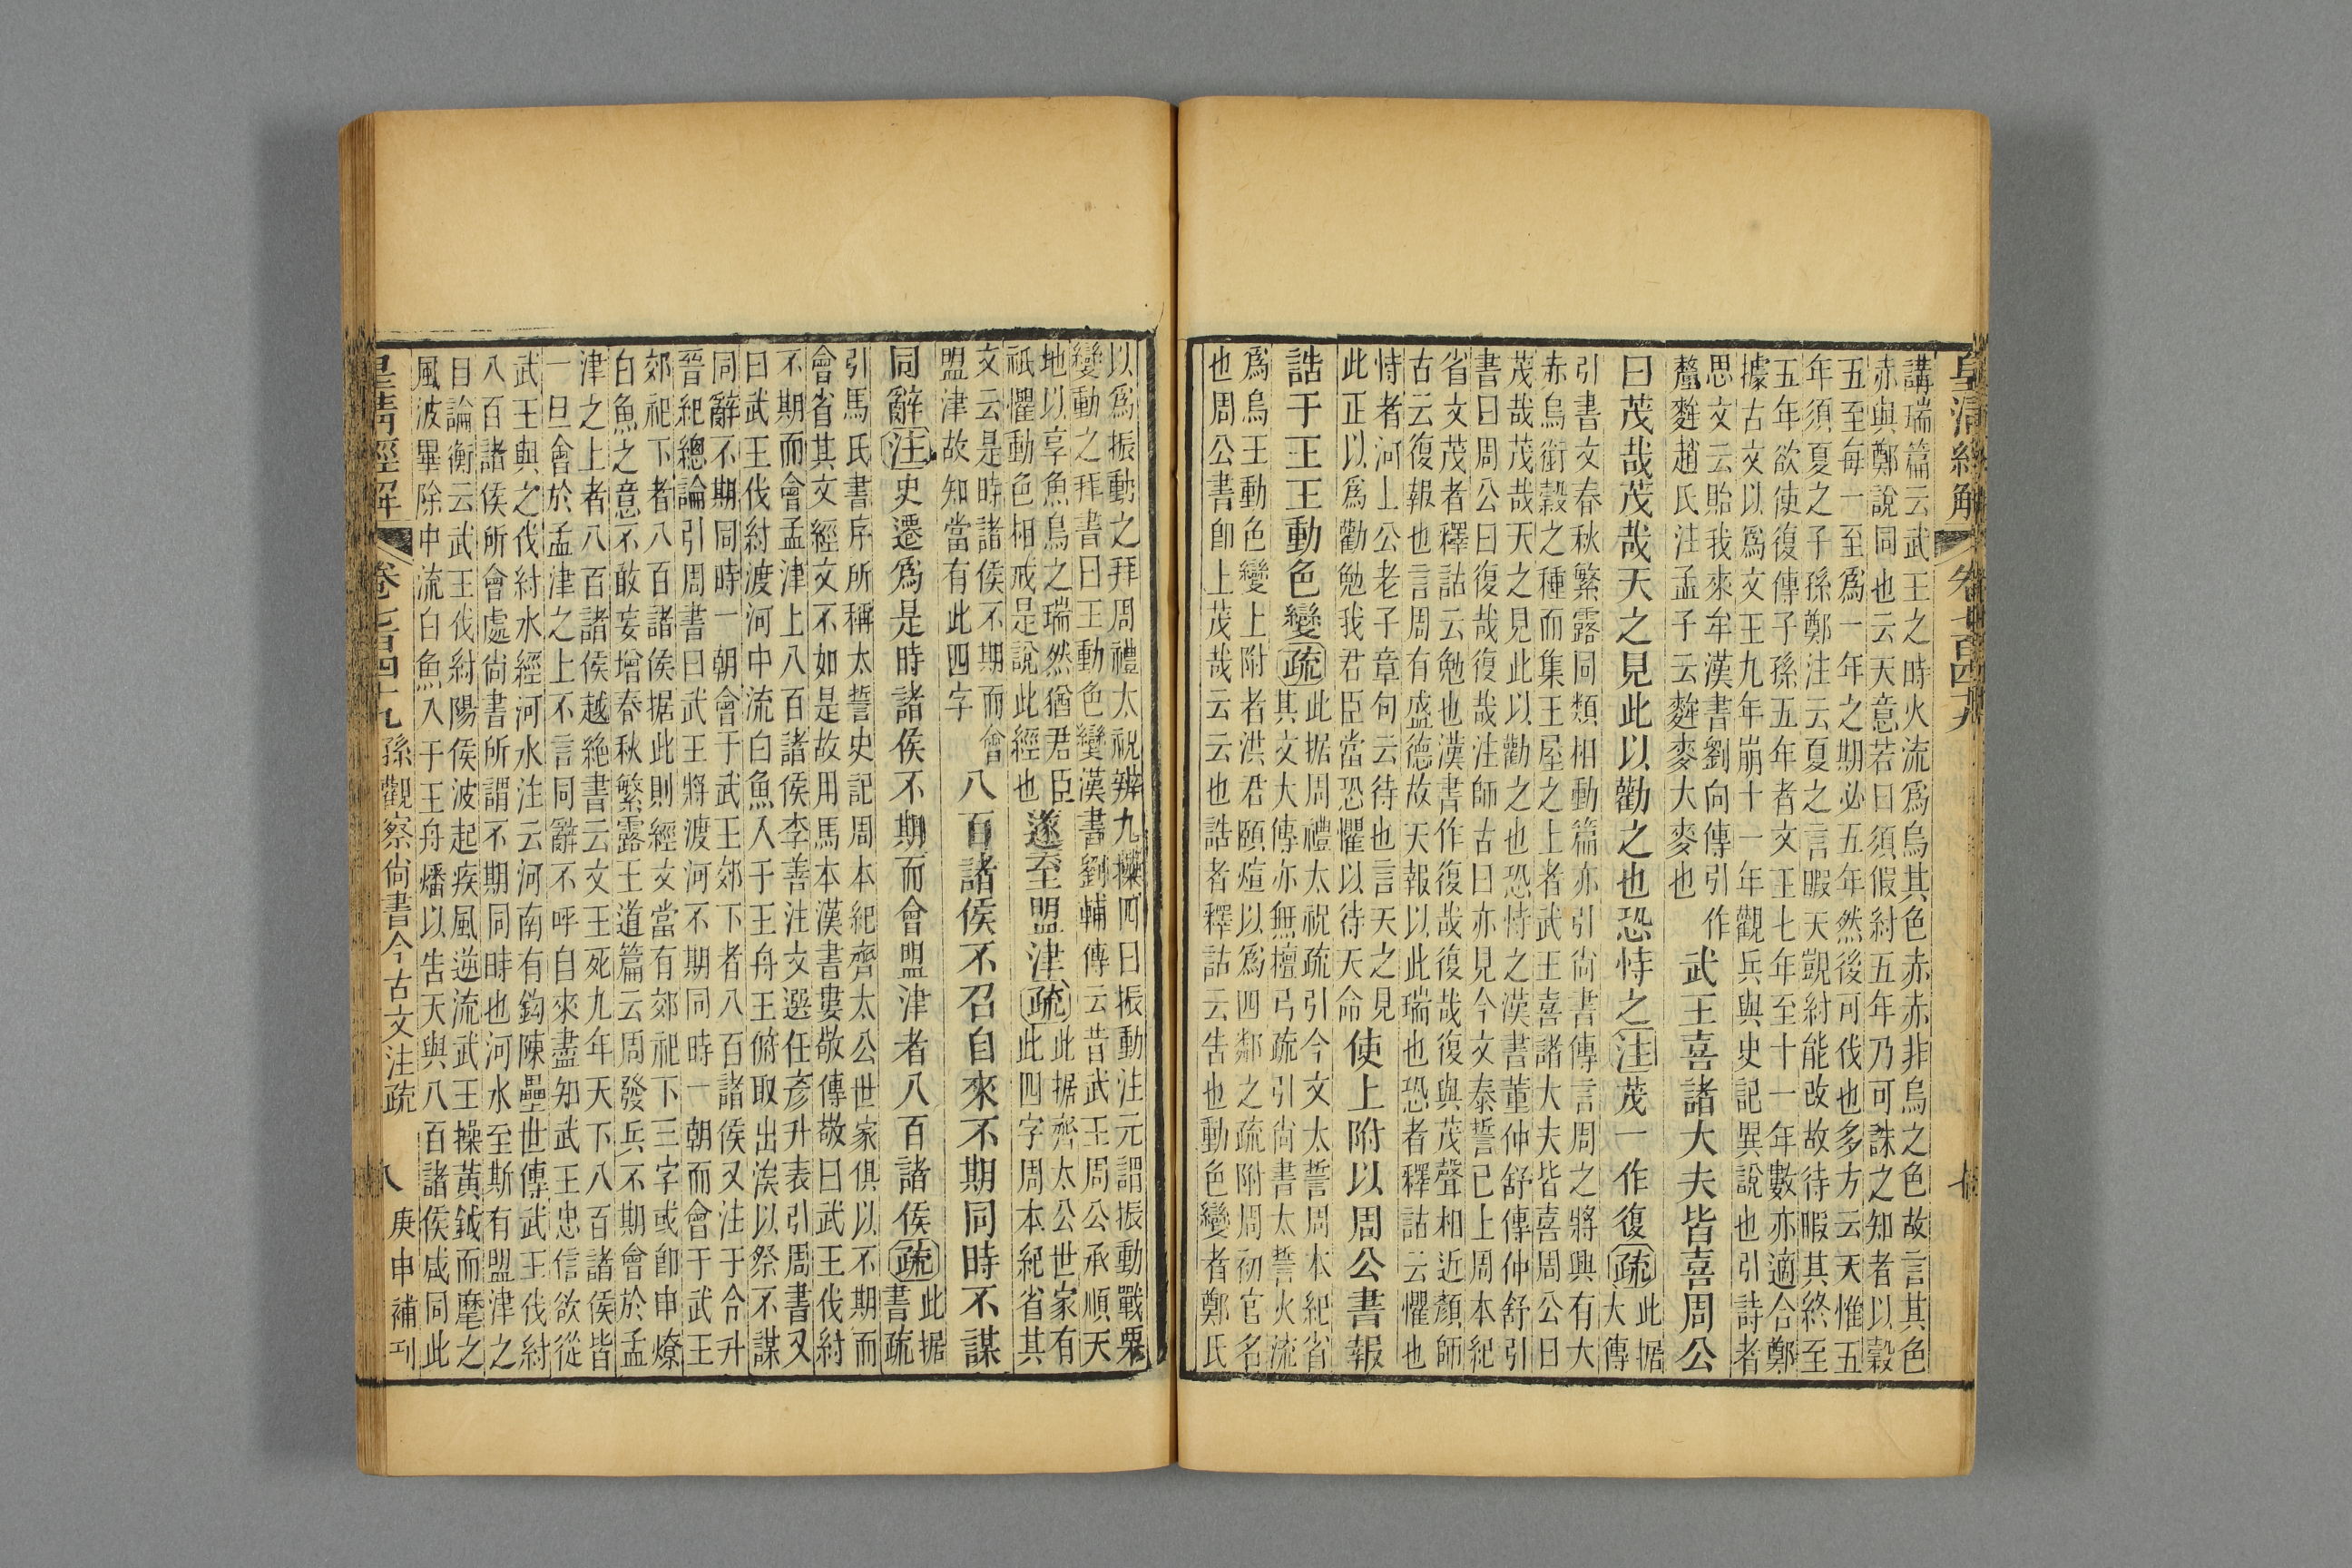 皇清經解 卷七百四十九 七
講瑞篇云武王之時火流爲烏其色赤赤非烏之色故言其色
赤與鄭說同也云天意若曰須假紂五年乃可誅之知者以穀
五至每一至爲一年之期必五年然後可伐也多方云天惟五
年須夏之子孫鄭注云夏之言暇天覬紂能改故待暇其終至
五年欲使復傳子孫五年者文王七年至十一年數亦適合鄭
據古文以爲文王九年崩十一年觀兵與史記異說也引詩者
思文云貽我來牟漢書劉向傳引作
釐麰趙氏注孟子云麰麥大麥也
武王喜諸大夫皆喜周公
曰茂哉茂哉天之見此以勸之也恐恃之注茂一作復疏
此据
大傳
引書文春秋繁露同類相動篇亦引尙書傳言周之將興有大
赤烏銜穀之種而集王屋之上者武王喜諸大夫皆喜周公曰
茂哉茂哉天之見此以勸之也恐恃之漢書董仲舒傳仲舒引
書曰周公曰復哉復哉注師古曰亦見今文泰誓已上周本紀
省文茂者釋詁云勉也漢書作復哉復哉復與茂聲相近顏師
古云復報也言周有盛德故天報以此瑞也恐者釋詁云懼也
恃者河上公老子章句云待也言天之見
此正以爲勸勉我君臣當恐懼以待天命
使上附以周公書報
誥于王王動色變疏
此据周禮太祝疏引今文太誓周本紀省
其文大傳亦無檀弓疏引尙書太誓火流
爲烏王動色變上附者洪君頤煊以爲四鄰之疏附周初官名
也周公書卽上茂哉云云也誥者釋詁云吿也動色變者鄭氏
以爲振動之拜周禮太祝辨九𢷎四曰振動注元謂振動戰栗
變動之拜書曰王動色變漢書劉輔傳云昔武王周公承順天
地以享魚烏之瑞然猶君臣
祇懼動色相戒是說此經也
遂至盟津疏
此据齊太公世家有
此四字周本紀省其
文云是時諸侯不期而會
盟津故知當有此四字
八百諸侯不召自來不期同時不謀
同辭注史遷爲是時諸侯不期而會盟津者八百諸侯疏
此据
書疏
引馬氏書序所稱太誓史記周本紀齊太公世家俱以不期而
會省其文經文不如是故用馬本漢書婁敬傳敬曰武王伐紂
不期而會孟津上八百諸侯李善注文選任彥升表引周書又
曰武王伐紂渡河中流白魚入于王舟王俯取出涘以祭不謀
同辭不期同時一朝會于武王郊下者八百諸侯又注于令升
晉紀總論引周書曰武王將渡河不期同時一朝而會于武王
郊祀下者八百諸侯据此則經文當有郊祀下三字或卽申燎
白魚之意不敢妄增春秋繁露王道篇云周發兵不期會於孟
津之上者八百諸侯越絶書云文王死九年天下八百諸侯皆
一旦會於孟津之上不言同辭不呼自來盡知武王忠信欲從
武王與之伐紂水經河水注云河南有鉤陳壘世傳武王伐紂
八百諸侯所會處尙書所謂不期同時也河水至斯有盟津之
目論衡云武王伐紂陽侯波起疾風逆流武王操黃鉞而麾之
風波畢除中流白魚入于王舟燔以吿天與八百諸侯咸同此
皇淸經解 卷七百四十九 孫觀察尙書今古文注疏 八 庚申補刊